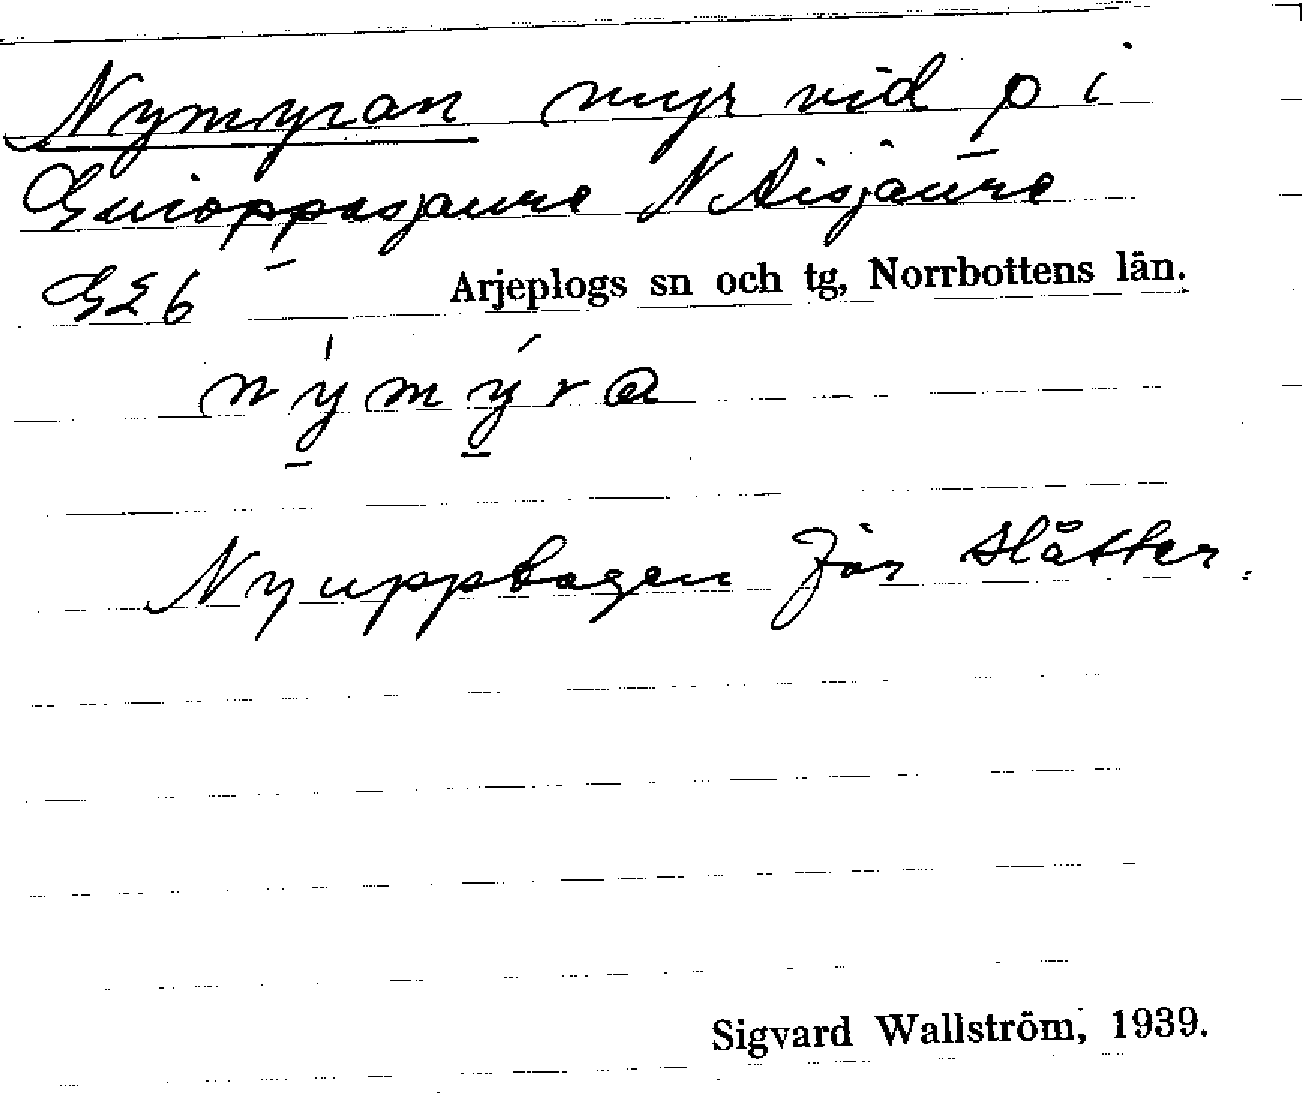 Nymyran myr vid p i
Guioppasjaure N Aisjaure
GE6 Arjeplogs sn och tg, Norrbottens län.
nýmýra
Ny upptagen för slåtter.
Sigvard Wallström, 1939.